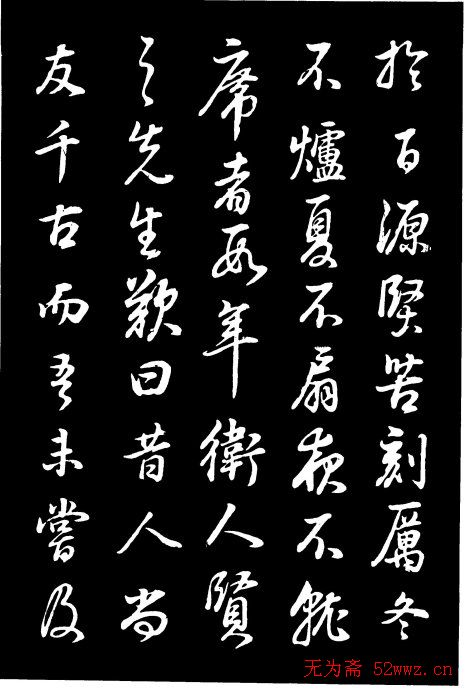 於百源堅苦刻厲冬
不爐夏不扇夜不就
席者數年衛人賢
之先生歎曰昔人尚
友千古而吾未嘗及
无为斋 52wwz.cn